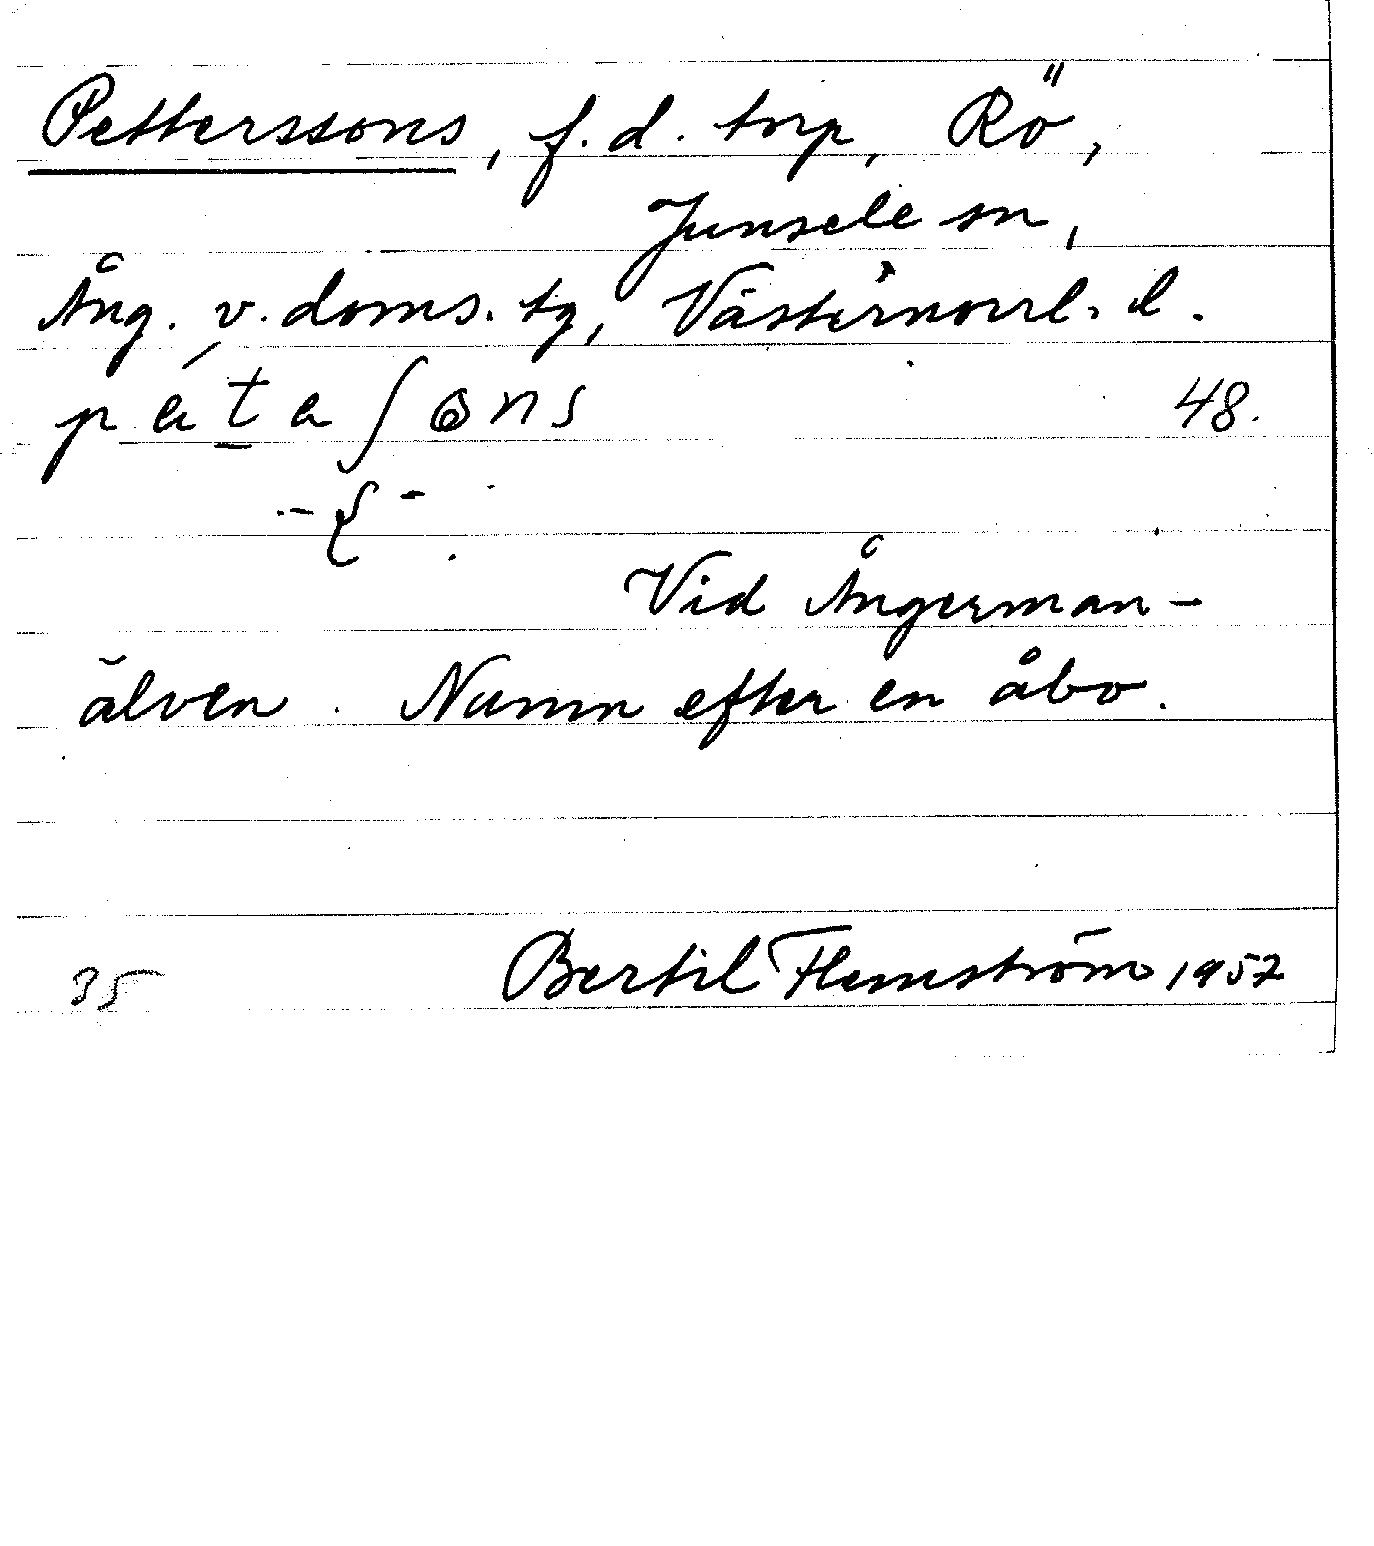 Petterssons, f.d. torp, Rö,
Junsele sn,
Ång. v. doms. tg, Västernorrl. l.
48.
Vid Ångerman-
älven. Namn efter en åbo.
35 Bertil Flemström 1957